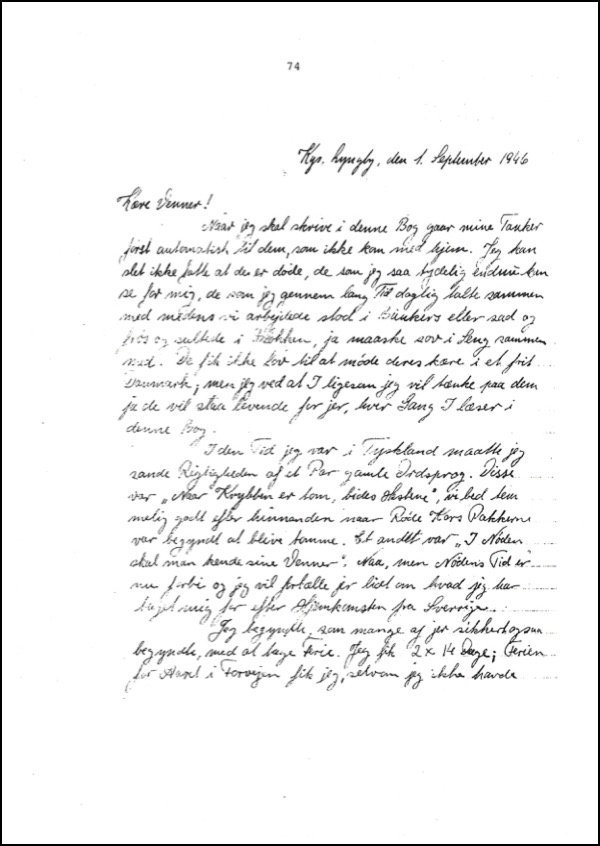 74
Kgs. Lyngby, den 1. September 1946
Kære Venner!
Naar jeg skal skrive i denne Bog gaar mine Tanker
først automatisk til dem, som ikke kom med hjem. Jeg kan
slet ikke fatte at de er døde, de som jeg saa tydelig endnu kan
se for mig, de som jeg gennem lang Tid daglig talte sammen
med medens vi arbejdede stod i Bunkers eller sad og
frøs og sultede i Blokken, ja maaske sov i Seng sammen
med. De fik ikke Lov til at møde deres kære i et frit
Danmark; men jeg ved at I ligesom jeg vil tænke paa dem
ja de vil staa levende for jer, hver Gang I læser i
denne Bog.
I den Tid jeg var i Tyskland maatte jeg
sande Rigtigheden af et Par gamle Ordsprog. Disse
var „Naar Krybben er tom, bides Hestene", vi bed tem
melig godt efter hinnanden naar Røde Kors Pakkerne
var begyndt at blive tomme. Et andet var „I Nøden
skal man kende sine Venner". Naa, men Nødens Tid er
nu forbi og jeg vil fortælle jer lidt om hvad jeg har
taget mig for efter Hjemkomsten fra Sverrige.
Jeg begyndte, som mange af jer sikkert ogsaa
begyndte, med at tage Ferie. Jeg fik 2 x 14 Dage; Ferien
for Aaret i Forvejen fik jeg, selvom jeg ikke havde